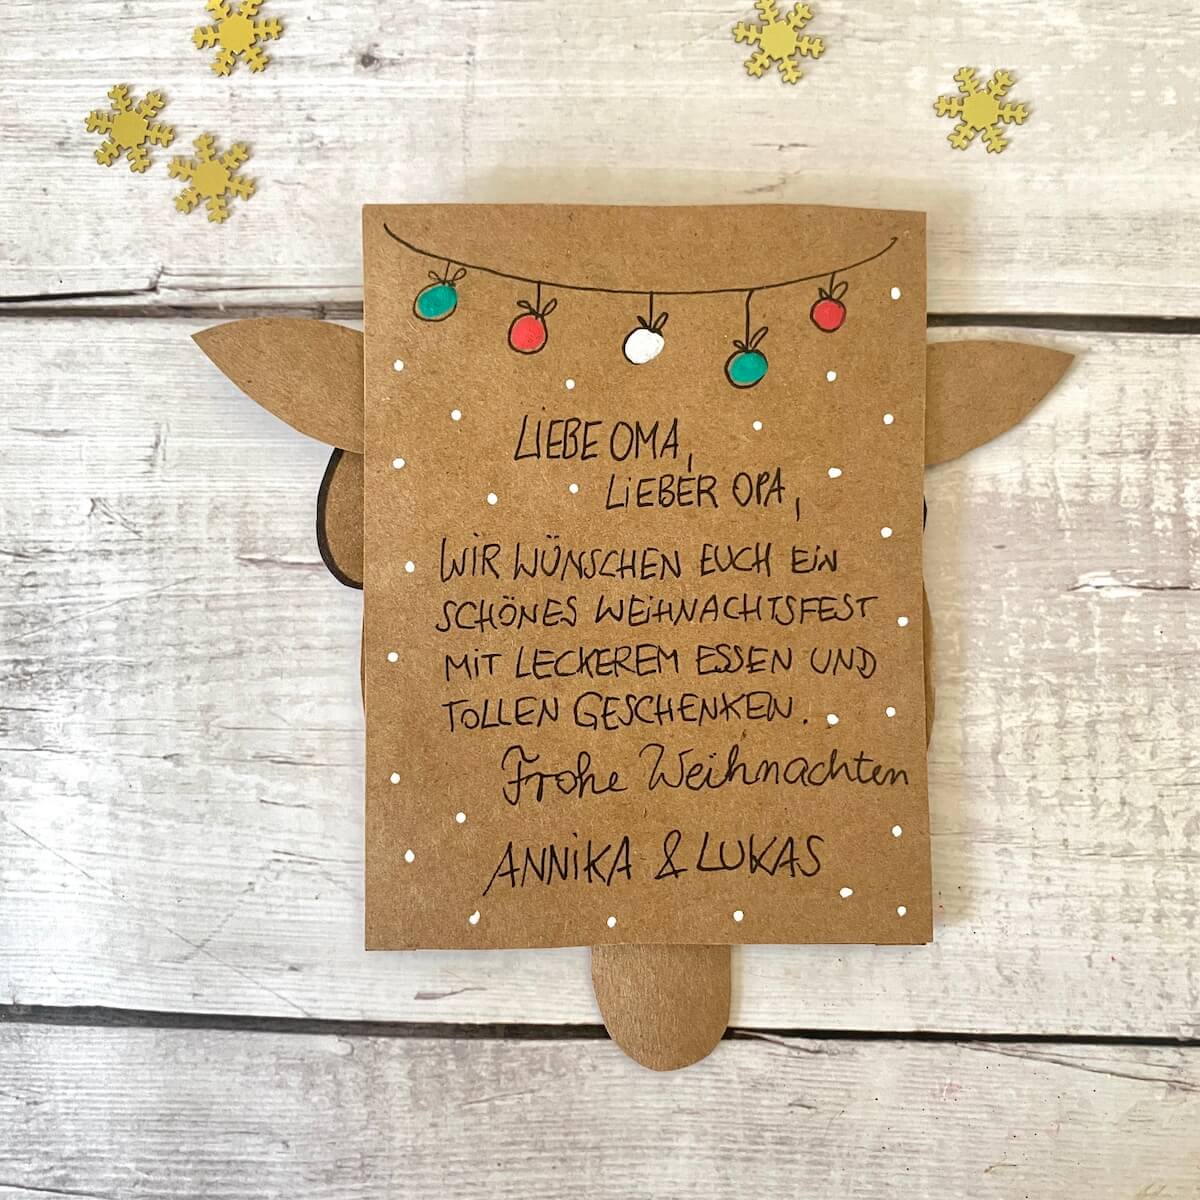 LIEBE OMA,
LIEBER OPA,
WIR WÜNSCHEN EUCH EIN
SCHÖNES WEIHNACHTSFEST
MIT LECKEREM ESSEN UND
TOLLEN GESCHENKEN.
Frohe Weihnachten
ANNIKA & LUKAS